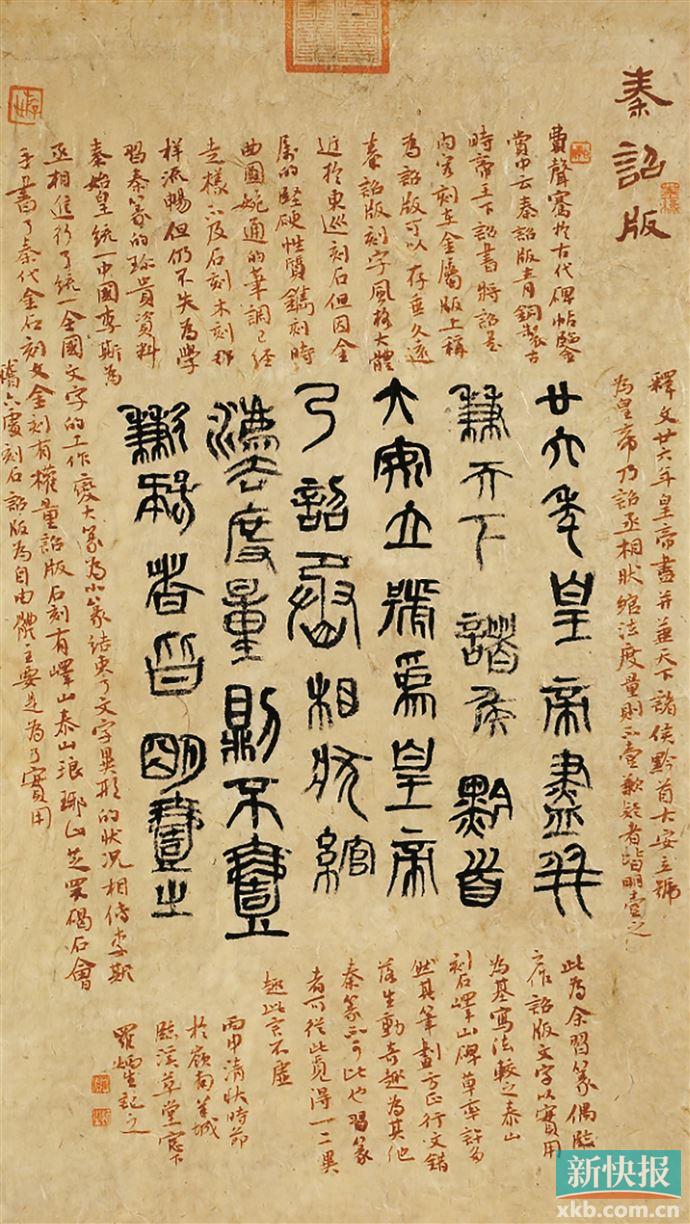 秦詔版
釋文廿六年皇帝盡并兼天下諸侯黔首大安立號
為皇帝乃詔丞相狀綰法度量則不壹歉疑者皆明壹之
費聲騫於古代碑帖鑒
賞中云秦詔版青銅製古
時帝王下詔書將詔書
内容刻在金屬版上稱
為詔版可以存垂久遠
秦詔版刻字風格大體
近於東巡刻石但因金
屬的堅硬性質鐫刻時
曲圓婉通的筆調已經
走樣不及石刻木刻那
样流暢但仍不失為學
習秦篆的珍貴資料
秦始皇統一中國李斯為
丞相進行了統一全國文字的工作變大篆為小篆結束了文字異形的狀況相傳李斯
手書了秦代金石刻文金刻有權量詔版石刻有嶧山泰山琅琊山芝罘碣石會
稽六處刻石詔版為自由體主要是為了實用
廿六年皇帝盡并
兼天下諸侯黔首
大安立號為皇帝
乃詔丞相狀綰
灋度量則不壹
歉疑者皆明壹之
此為余習篆偶臨
之作詔版文字以實用
為基寫法較之泰山
刻石嶧山碑草率許多
然其筆劃方正行文錯
落生動奇趣為其他
秦篆不可比也習篆
者可從此覓得一二異
趣此言不虛
丙申清秋時節
於嶺南羊城
臨溪草堂窗下
羅炳生記之
新快报
xkb.com.cn